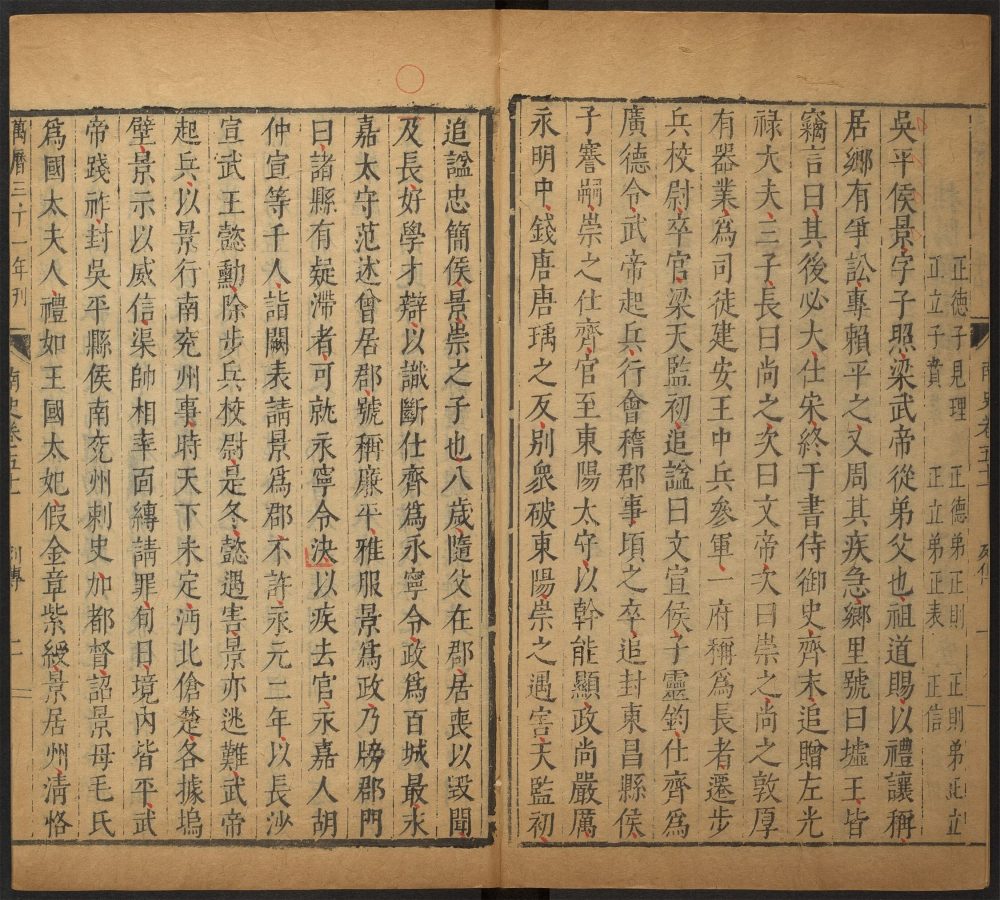 南史卷五十一 列傳 一
正德子見理 正德弟正則 正則弟正立
正立子賁 正立弟正表 正信
吳平侯景字子照梁武帝從弟父也祖道賜以禮讓稱
居鄉有爭訟專賴平之又周其疾急鄉里號曰墟王皆
竊言曰其後必大仕宋終于書侍御史齊末追贈左光
祿大夫三子長曰尚之次曰文帝次曰崇之尚之敦厚
有器業爲司徒建安王中兵參軍一府稱爲長者遷步
兵校尉卒官梁天監初追諡曰文宣侯子靈鈞仕齊爲
廣德令武帝起兵行會稽郡事頃之卒追封東昌縣侯
子謇嗣崇之仕齊官至東陽太守以幹能顯政尚嚴厲
永明中錢唐唐瑀之反別衆破東陽崇之遇害天監初
追諡忠簡侯景崇之子也八歲隨父在郡居喪以毀聞
及長好學才辯以識斷仕齊爲永寧令政爲百城最永
嘉太守范述曾居郡號稱廉平雅服景爲政乃牓郡門
曰諸縣有疑滯者可就永寧令決以疾去官永嘉人胡
仲宣等千人詣闕表請景爲郡不許永元二年以長沙
宣武王懿勳除步兵校尉是冬懿遇害景亦逃難武帝
起兵以景行南兖州事時天下未定沔北傖楚各據塢
壁景示以威信渠帥相率面縛請罪旬日境內皆平武
帝踐祚封吳平縣侯南兖州刺史加都督詔景母毛氏
爲國太夫人禮如王國太妃假金章紫綬景居州清恪
萬曆三十一年刊 南史卷五十一 列傳 二